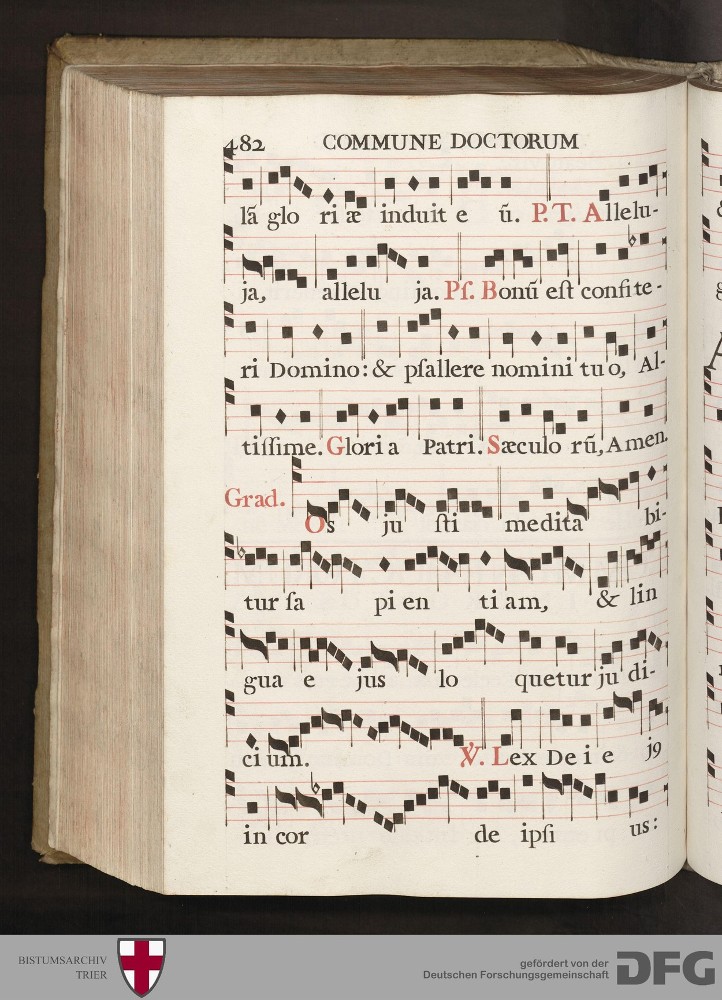 482 COMMUNE DOCTORUM
lã glo ri æ induit e ũ. P. T. Allelu-
ja, allelu ja. Pſ. Bonũ eſt confite-
ri Domino: & pſallere nomini tuo, Al-
tiſſime. Gloria Patri. Sæculo rũ, Amen.
Grad. Os ju ſti medita bi-
tur ſa pi en ti am, & lin
gua e jus lo quetur ju di-
ci um. ℣. Lex De i e j9
in cor de ipſi us:
BISTUMSARCHIV
TRIER
gefördert von der
Deutschen Forschungsgemeinschaft
DFG